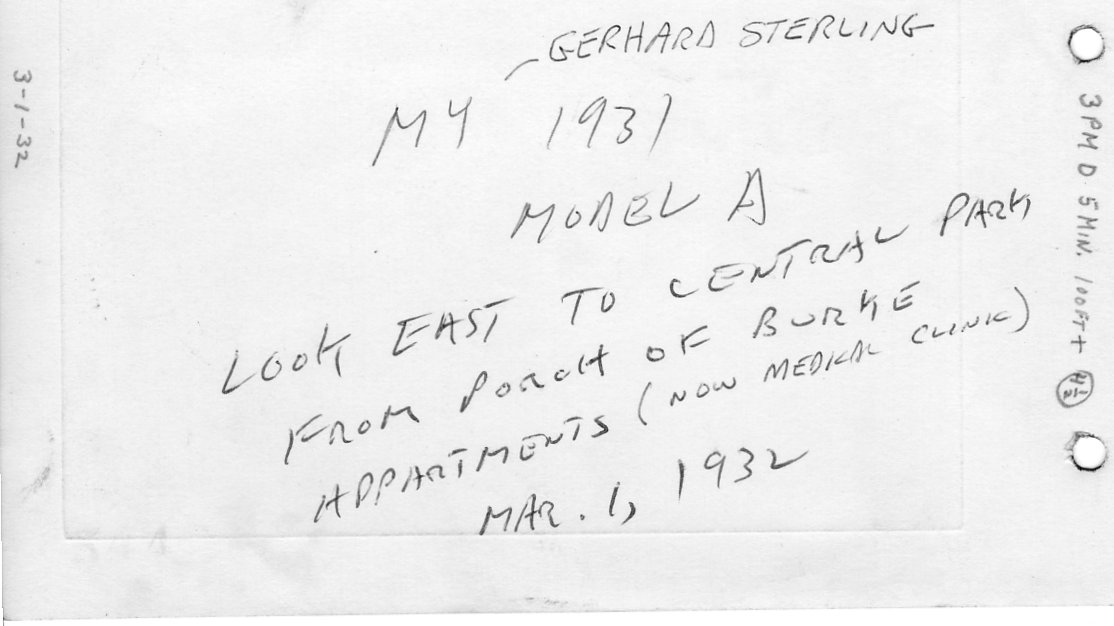 GERHARD STERLING
MY 1931
MODEL A
LOOK EAST TO CENTRAL PARK
FROM PORCH OF BURKE
APPARTMENTS (NOW MEDICAL CLINIC)
MAR. 1, 1932
3-1-32
3 PM D 5 MIN. 100FT+